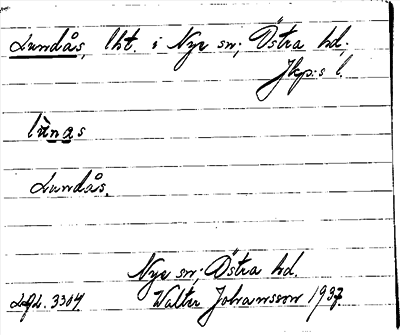 Lundås, lht. i Nye sn; Östra hd.
Jkp:s l.
lùnas
Lundås.
Nye sn; Östra hd.
LgL. 3304. Walter Johansson 1937